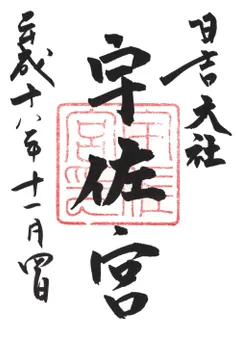 日吉大社
宇佐宮
平成十八年十一月四日